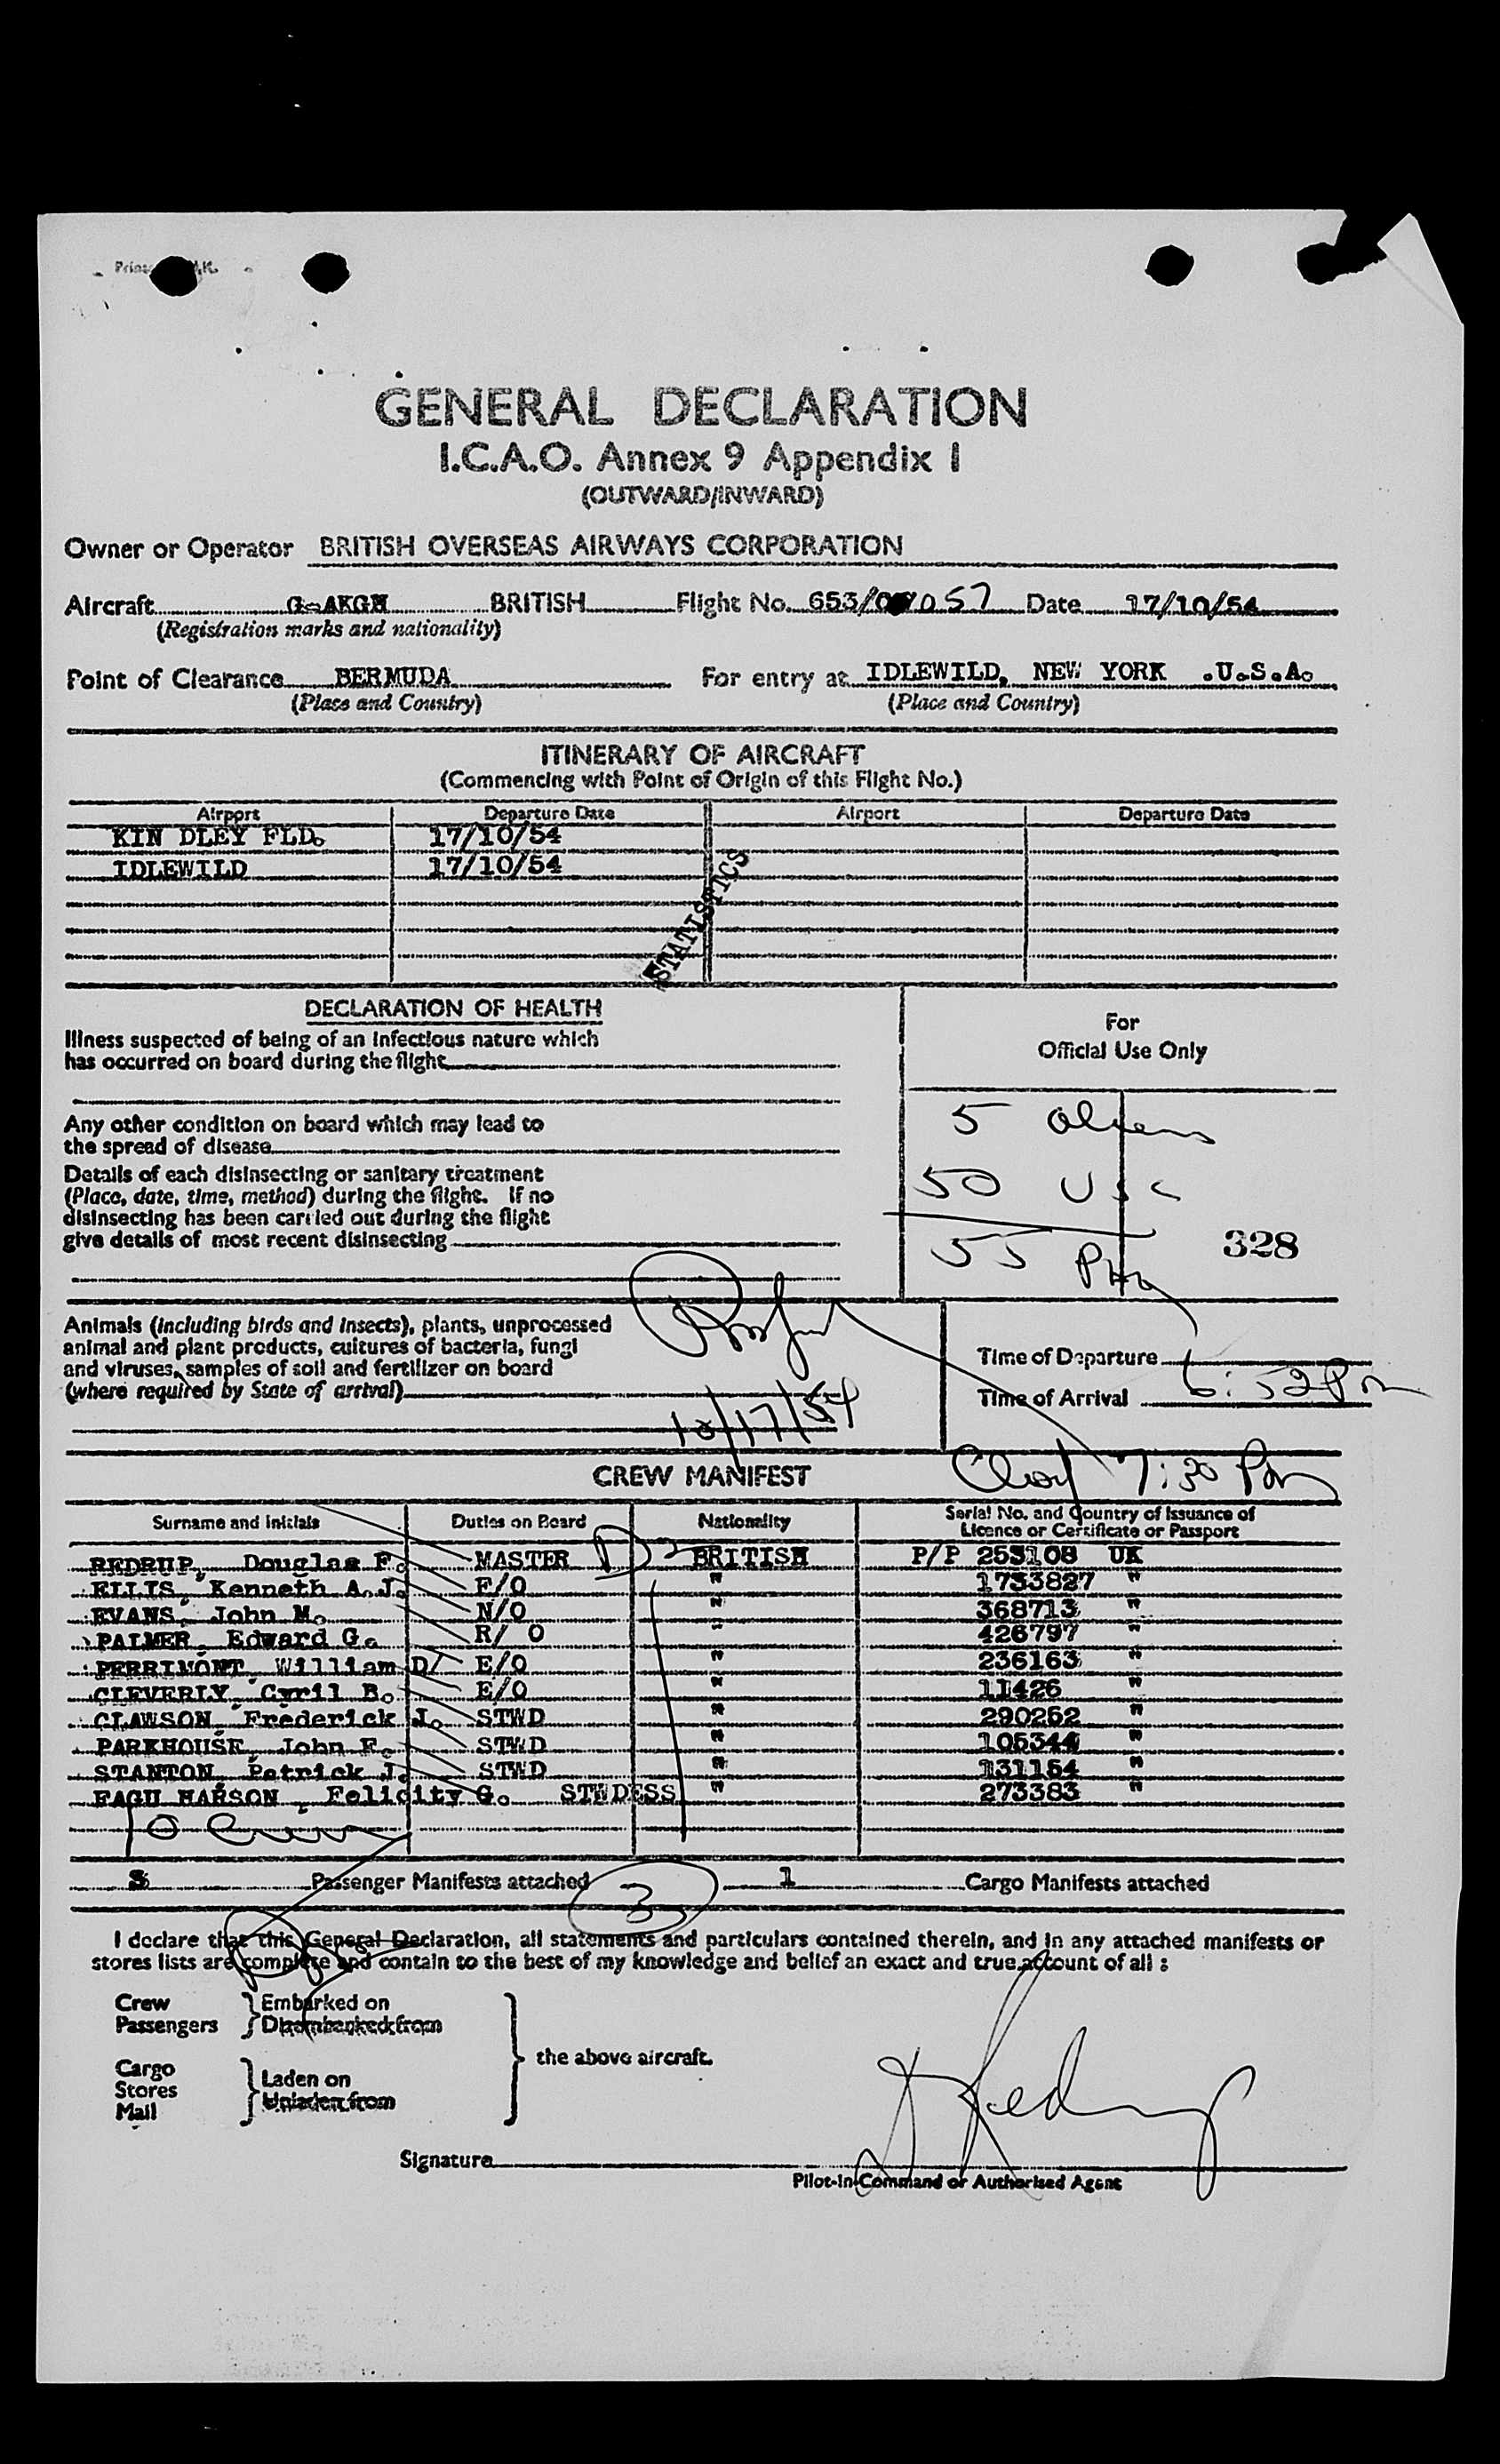 GENERAL DECLARATION
I.C.A.O. Annex 9 Appendix I
(OUTWARD/INWARD)
Owner or Operator BRITISH OVERSEAS AIRWAYS CORPORATION
Aircraft G-AKGM BRITISH Flight No. 653/ 057 Date 17/10/54
(Registration marks and nationality)
Point of Clearance BERMUDA For entry at IDLEWILD, NEW YORK .U.S.A.
(Place and Country) (Place and Country)
ITINERARY OF AIRCRAFT
(Commencing with Point of Origin of this Flight No.)
Airport Departure Date Airport Departure Date
KIN DLEY FLD. 17/10/54
IDLEWILD 17/10/54
STATISTICS
DECLARATION OF HEALTH
Illness suspected of being of an infectious nature which
has occurred on board during the flight
For
Official Use Only
Any other condition on board which may lead to
the spread of disease
Details of each disinsecting or sanitary treatment
(Place, date, time, method) during the flight. If no
disinsecting has been carried out during the flight
give details of most recent disinsecting
5 Aliens
50 USC
55
328
Animals (including birds and insects), plants, unprocessed
animal and plant products, cultures of bacteria, fungi
and viruses, samples of soil and fertilizer on board
(where required by State of arrival)
10/17/54
Time of Departure
Time of Arrival 6:52 Pm
7:30 Pm
CREW MANIFEST
Surname and initials Duties on Board Nationality Serial No. and Country of Issuance of Licence or Certificate or Passport
REDRUP, Douglas F. MASTER BRITISH P/P 253108 UK
ELLIS, Kenneth A.J. F/O " 1733827 "
EVANS, John M. N/O " 368713 "
PALMER, Edward G. R/ O " 426797 "
PERRIMONT, William D/ E/O " 236163 "
CLEVERLY, Cyril B. E/O " 11426 "
CLAWSON, Frederick J. STWD " 290252 "
PARKHOUSE, John F. STWD " 105344 "
STANTON, Patrick J. STWD " 131154 "
FAGU HARSON, Felicity G. STWDESS " 273383 "
10 Crew
3 Passenger Manifests attached 3 1 Cargo Manifests attached
I declare that this General Declaration, all statements and particulars contained therein, and in any attached manifests or
stores lists are complete and contain to the best of my knowledge and belief an exact and true account of all :
Crew
Passengers
Embarked on
Disembarked from
Cargo
Stores
Mail
Laden on
Unladen from
the above aircraft.
Signature
Pilot-in-Command or Authorised Agent